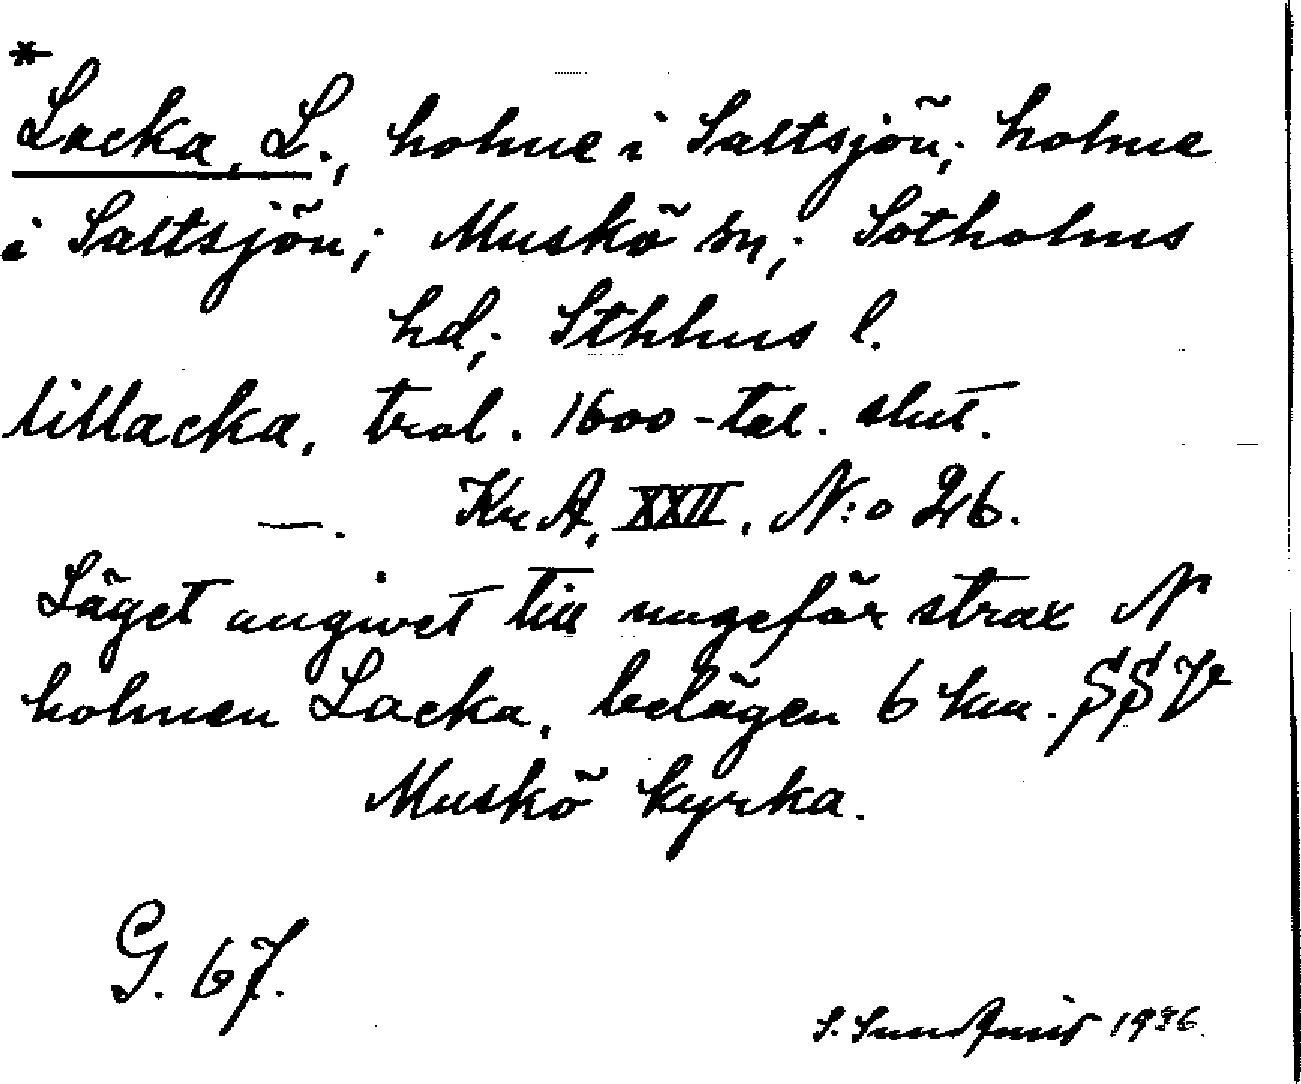 *
Lacka, L., holme i Saltsjön; holme
i Saltsjön; Muskö sn; Sotholms
hd; Sthlms l.
lillacka, trol. 1600-tal. slut.
—. KrA, XXII, N:o 26.
Läget angivet till ungefär strax N
holmen Lacka, belägen 6 km. SSV
Muskö kyrka.
G. 67.
S. Sundqvist 1936.